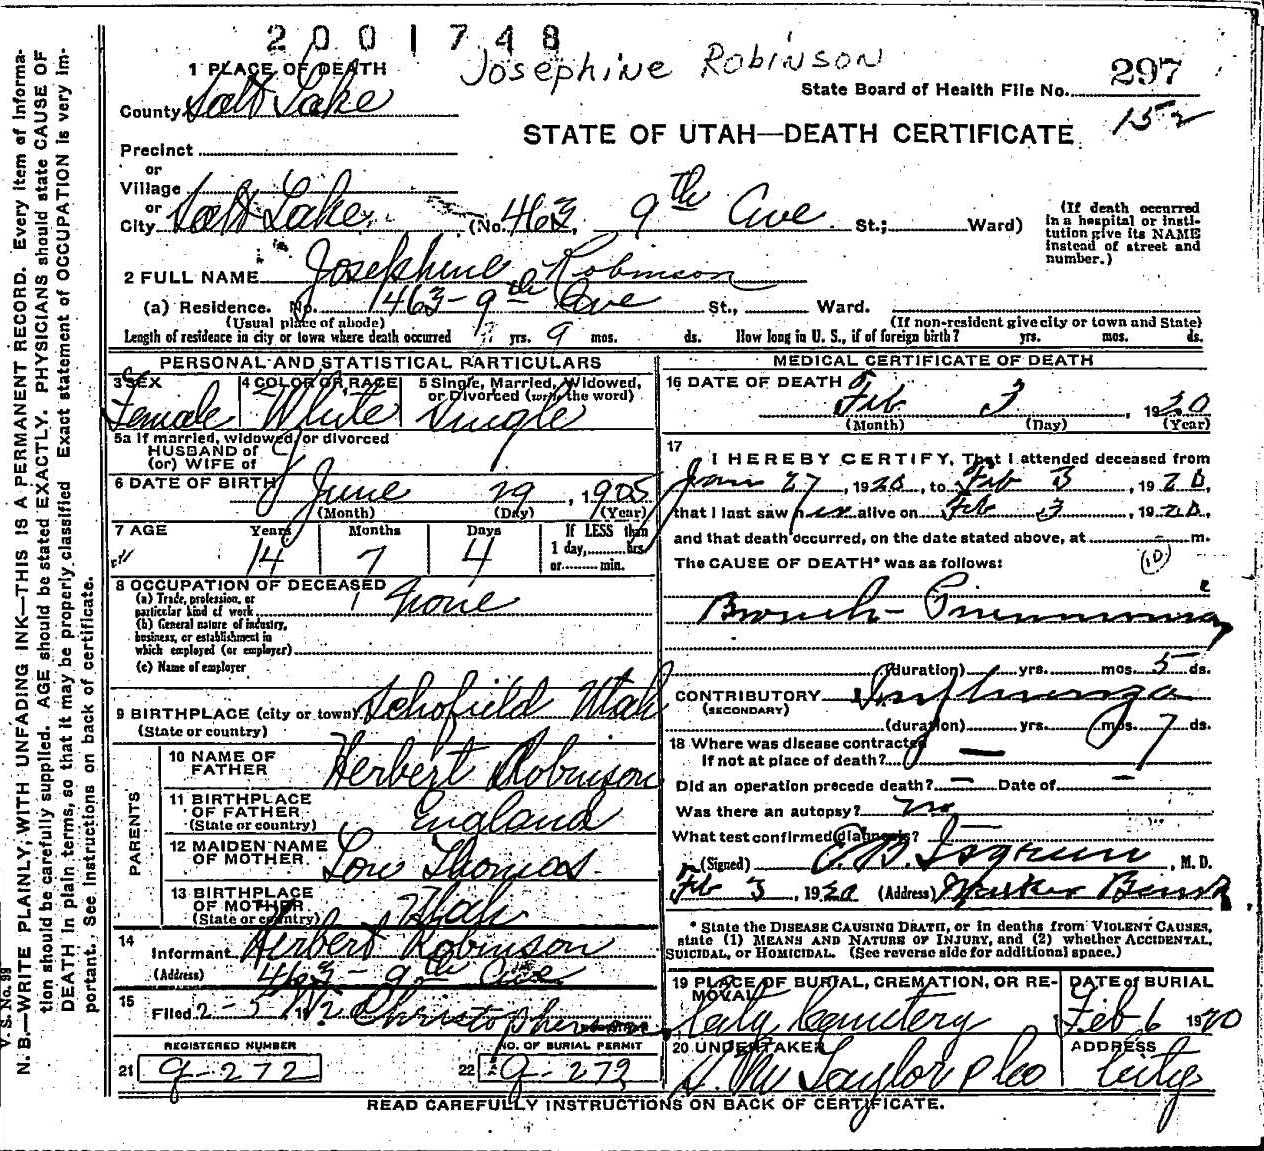 2001748
Josephine Robinson
297
State Board of Health File No.
152
1 PLACE OF DEATH
County Salt Lake
STATE OF UTAH—DEATH CERTIFICATE
Precinct
or
Village
or
City Salt Lake (No. 463, 9th Ave St.; Ward)
(If death occurred in a hospital or institution give its NAME instead of street and number.)
2 FULL NAME Josephine Robinson
(a) Residence. No. 463-9th Ave St., Ward.
(Usual place of abode)
(If non-resident give city or town and State)
Length of residence in city or town where death occurred yrs. 9 mos. ds. How long in U. S., if of foreign birth? yrs. mos. ds.
PERSONAL AND STATISTICAL PARTICULARS
3 SEX
Female
4 COLOR OR RACE
White
5 Single, Married, Widowed, or Divorced (write the word)
Single
5a If married, widowed, or divorced
HUSBAND of
(or) WIFE of
6 DATE OF BIRTH
June 29, 1905
(Month) (Day) (Year)
7 AGE
Years Months Days
14 7 4
If LESS than
1 day, hrs.
or min.
8 OCCUPATION OF DECEASED
(a) Trade, profession, or particular kind of work None
(b) General nature of industry, business, or establishment in which employed (or employer)
(c) Name of employer
9 BIRTHPLACE (city or town) Schofield Utah
(State or country)
PARENTS
10 NAME OF FATHER Herbert Robinson
11 BIRTHPLACE OF FATHER England
(State or country)
12 MAIDEN NAME OF MOTHER Lou Thomas
13 BIRTHPLACE OF MOTHER Utah
(State or country)
14
Informant Herbert Robinson
(Address) 463-9th Ave
15
Filed 2-5 Christopherson
REGISTERED NUMBER
21 9-272
NO. OF BURIAL PERMIT
22 9-272
MEDICAL CERTIFICATE OF DEATH
16 DATE OF DEATH
Feb 3, 1920
(Month) (Day) (Year)
17
I HEREBY CERTIFY, That I attended deceased from
Jan 27, 1920, to Feb 3, 1920,
that I last saw her alive on Feb 3, 1920,
and that death occurred, on the date stated above, at m.
The CAUSE OF DEATH* was as follows:
(10)
Broncho-Pneumonia
(duration) yrs. mos. 5 ds.
CONTRIBUTORY Influenza
(SECONDARY)
(duration) yrs. mos. 7 ds.
18 Where was disease contracted
If not at place of death? —
Did an operation precede death? — Date of —
Was there an autopsy? no
What test confirmed diagnosis? —
(Signed) Isgreen, M. D.
Feb 3, 1920 (Address) Walker Bank
* State the DISEASE CAUSING DEATH, or in deaths from VIOLENT CAUSES,
state (1) MEANS AND NATURE OF INJURY, and (2) whether ACCIDENTAL,
SUICIDAL, or HOMICIDAL. (See reverse side for additional space.)
19 PLACE OF BURIAL, CREMATION, OR REMOVAL
City Cemetery
DATE of BURIAL
Feb 6 1920
20 UNDERTAKER
S. M. Taylor & Co
ADDRESS
City
READ CAREFULLY INSTRUCTIONS ON BACK OF CERTIFICATE.
V. S. No. 99
N. B.—WRITE PLAINLY, WITH UNFADING INK—THIS IS A PERMANENT RECORD. Every item of information should be carefully supplied. AGE should be stated EXACTLY. PHYSICIANS should state CAUSE OF
DEATH in plain terms, so that it may be properly classified. Exact statement of OCCUPATION is very important. See instructions on back of certificate.